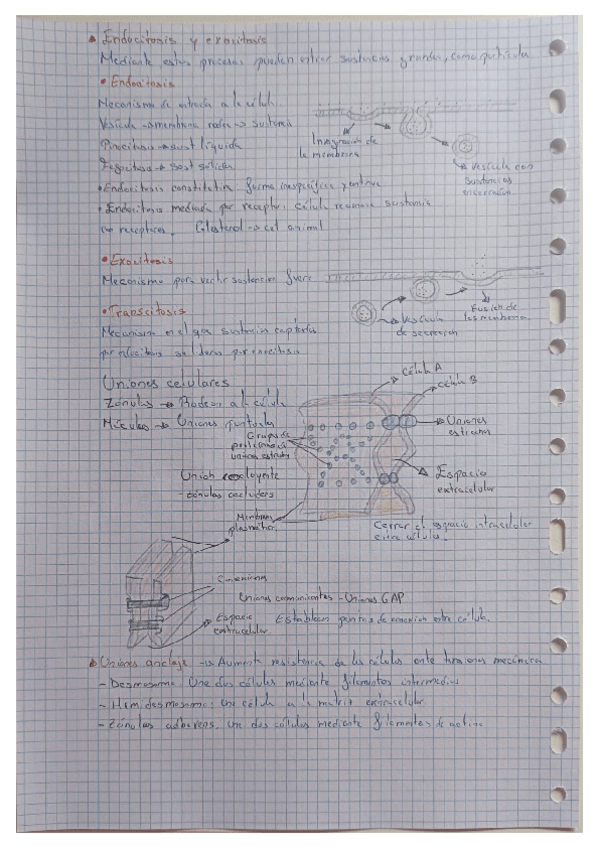 Endocitosis y exocitosis
Mediante estos procesos pueden entrar sustancias grandes, como partícula
• Endocitosis
Mecanismo de entrada a la célula
Vesícula → membrana rodea → sustancia
Pinocitosis → sust líquida
Fagocitosis → sost sólida
Invaginación de la membrana
Vesícula con sustancias
• Endocitosis constitutiva forma inespecífica y continua
• Endocitosis mediada por receptor, célula reconoce sustancia
con receptores. Colesterol → cel animal
• Exocitosis
Mecanismo para verter sustancias fuera
Vesícula de secreción
Fusión de las membrana
• Transcitosis
Mecanismo en el que sustancia captada
por endocitosis se libera por exocitosis
Uniones celulares
Zónulas → Rodean a la célula
Máculas → Uniones puntuales
Célula A
Célula B
Uniones estrechas
Grupo de proteínas de uniones estrechas
Espacio extracelular
Unión ocluyente
- zónulas occludens
Membrana plasmática
Cerrar el espacio intracelular
entre células.
Conexiones
Uniones comunicantes - Uniones GAP
Espacio extracelular
Establecen puntos de conexión entre célula.
Uniones anclaje → Aumenta resistencia de las células ante tensiones mecánica
- Desmosoma: Une dos células mediante filamentos intermedios
- Hemidesmosoma: Une célula a la matriz extracelular
- Zónulas adherens. Une dos células mediante filamentos de actina